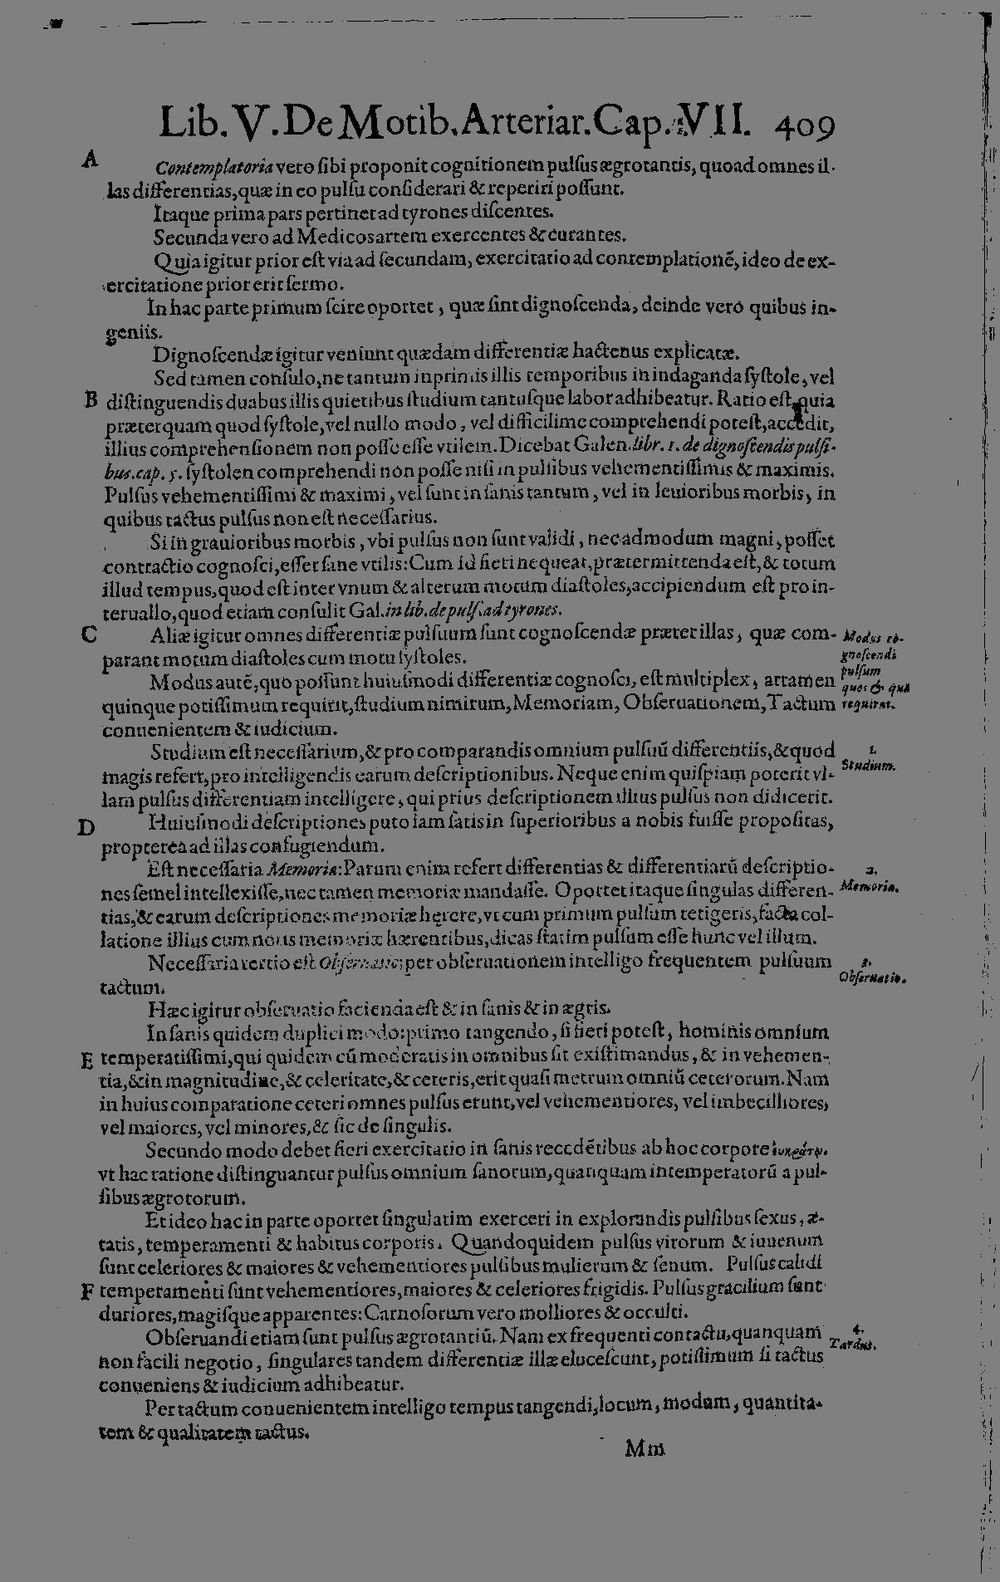 Lib. V. De Motib. Arteriar. Cap. VII. 409
A
Contemplatoria vero sibi proponit cognitionem pulsus ægrotantis, quoad omnes il-
las differentias, quæ in eo pulsu considerari & reperiri possunt.
Itaque prima pars pertinet ad tyrones discentes.
Secunda vero ad Medicos artem exercentes & curantes.
Quia igitur prior est via ad secundam, exercitatio ad contemplationē, ideo de ex-
ercitatione prior erit sermo.
In hac parte primum scire oportet, quæ sint dignoscenda, deinde vero quibus in-
geniis.
Dignoscendæ igitur veniunt quædam differentiæ hactenus explicatæ.
Sed tamen consulo, ne tantum inprimis illis temporibus in indaganda systole, vel
B distinguendis duabus illis quietibus studium tantusque labor adhibeatur. Ratio est, quia
præterquam quod systole, vel nullo modo, vel difficilime comprehendi potest, accedit,
illius comprehensionem non posse esse vtilem. Dicebat Galen. libr. 1. de dignoscendis pulsi-
bus. cap. 5. systolen comprehendi non posse nisi in pulsibus vehementissimis & maximis.
Pulsus vehementissimi & maximi, vel sunt in sanis tantum, vel in leuioribus morbis, in
quibus tactus pulsus non est necessarius.
Si in grauioribus morbis, vbi pulsus non sunt validi, nec admodum magni, posset
contractio cognosci, esset sane vtilis: Cum id fieri nequeat, prætermittenda est, & totum
illud tempus, quod est inter vnum & alterum motum diastoles, accipiendum est pro in-
teruallo, quod etiam consulit Gal. in lib. de puls. ad tyrones.
C Aliæ igitur omnes differentiæ pulsuum sunt cognoscendæ præter illas, quæ com-
parant motum diastoles cum motu systoles.
Modus co-
gnoscendi
pulsum
quos & quæ
requirat.
Modus autē, quo possunt huiusmodi differentiæ cognosci, est multiplex, attamen
quinque potissimum requirit, studium nimirum, Memoriam, Obseruationem, Tactum
conuenientem & iudicium.
Studium est necessarium, & pro comparandis omnium pulsuū differentiis, & quod
magis refert, pro intelligendis earum descriptionibus. Neque enim quispiam poterit vl-
lam pulsus differentiam intelligere, qui prius descriptionem illius pulsus non didicerit.
1.
Studium.
D Huiusmodi descriptiones puto iam satis in superioribus a nobis fuisse propositas,
propterea ad illas confugiendum.
Est necessaria Memoria: Parum enim refert differentias & differentiarū descriptio-
nes semel intellexisse, nec tamen memoriæ mandasse. Oportet itaque singulas differen-
tias, & earum descriptiones memoriæ herere, vt cum primum pulsum tetigeris, facta col-
latione illius cum notis memoriæ hærentibus, dicas statim pulsum esse hunc vel illum.
2.
Memoria.
Necessaria tertio est Obseruatio; per obseruationem intelligo frequentem pulsuum
tactum.
3.
Obseruatio.
Hæc igitur obseruatio facienda est & in sanis & in ægris.
In sanis quidem duplici modo: primo tangendo, si fieri potest, hominis omnium
E temperatissimi, qui quidem cū moderatis in omnibus sit existimandus, & in vehemen-
tia, & in magnitudine, & celeritate, & ceteris, erit quasi metrum omniū ceterorum. Nam
in huius comparatione ceteri omnes pulsus erunt, vel vehementiores, vel imbecilliores,
vel maiores, vel minores, & sic de singulis.
Secundo modo debet fieri exercitatio in sanis recedētibus ab hoc corpore
vt hac ratione distinguantur pulsus omnium sanorum, quanquam intemperatorū a pul-
sibus ægrotorum.
Et ideo hac in parte oportet singulatim exerceri in explorandis pulsibus sexus, æ-
tatis, temperamenti & habitus corporis. Quandoquidem pulsus virorum & iuuenum
sunt celeriores & maiores & vehementiores pulsibus mulierum & senum. Pulsus calidi
F temperamenti sunt vehementiores, maiores & celeriores frigidis. Pulsus gracilium sunt
duriores, magisque apparentes: Carnosorum vero molliores & occulti.
Obseruandi etiam sunt pulsus ægrotantiū. Nam ex frequenti contactu, quanquam
non facili negotio, singulares tandem differentiæ illæ elucescunt, potissimum si tactus
conueniens & iudicium adhibeatur.
4.
Tactus.
Per tactum conuenientem intelligo tempus tangendi, locum, modum, quantita-
tem & qualitatem tactus.
Mm